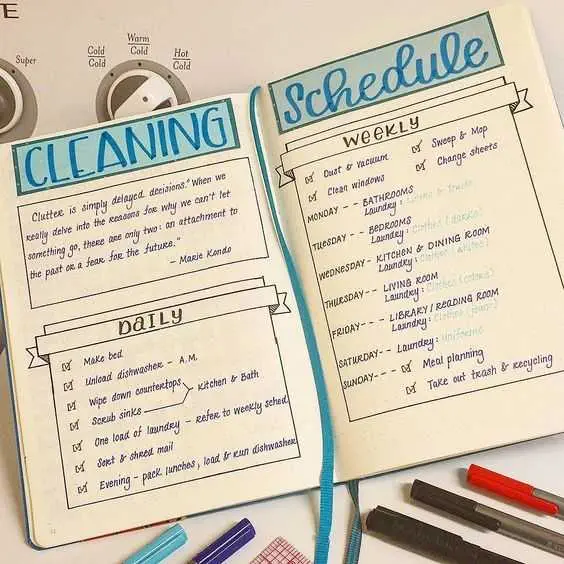 E
Super
Cold
Cold
Warm
Cold
Hot
Cold
CLEANING
Clutter is simply delayed decisions. "When we
really delve into the reasons for why we can't let
something go, there are only two: an attachment to
the past or a fear for the future."
– Marie Kondo
DAILY
Make bed
Unload dishwasher – A.M.
Wipe down countertops
Scrub sinks
Kitchen & Bath
One load of laundry – refer to weekly sched
Sort & shred mail
Evening – pack lunches, load & run dishwasher
Schedule
WEEKLY
Dust & vacuum
Sweep & Mop
Clean windows
Change sheets
MONDAY – – – BATHROOMS
Laundry: & towels
TUESDAY – – BEDROOMS
Laundry: Clothes (darks)
WEDNESDAY – KITCHEN & DINING ROOM
Laundry: Clothes (whites)
THURSDAY – – – LIVING ROOM
Laundry: Clothes (colors)
FRIDAY – – – LIBRARY / READING ROOM
Laundry: Clothes (jeans)
SATURDAY – – Laundry: Uniforms
SUNDAY – – – Meal planning
Take out trash & recycling